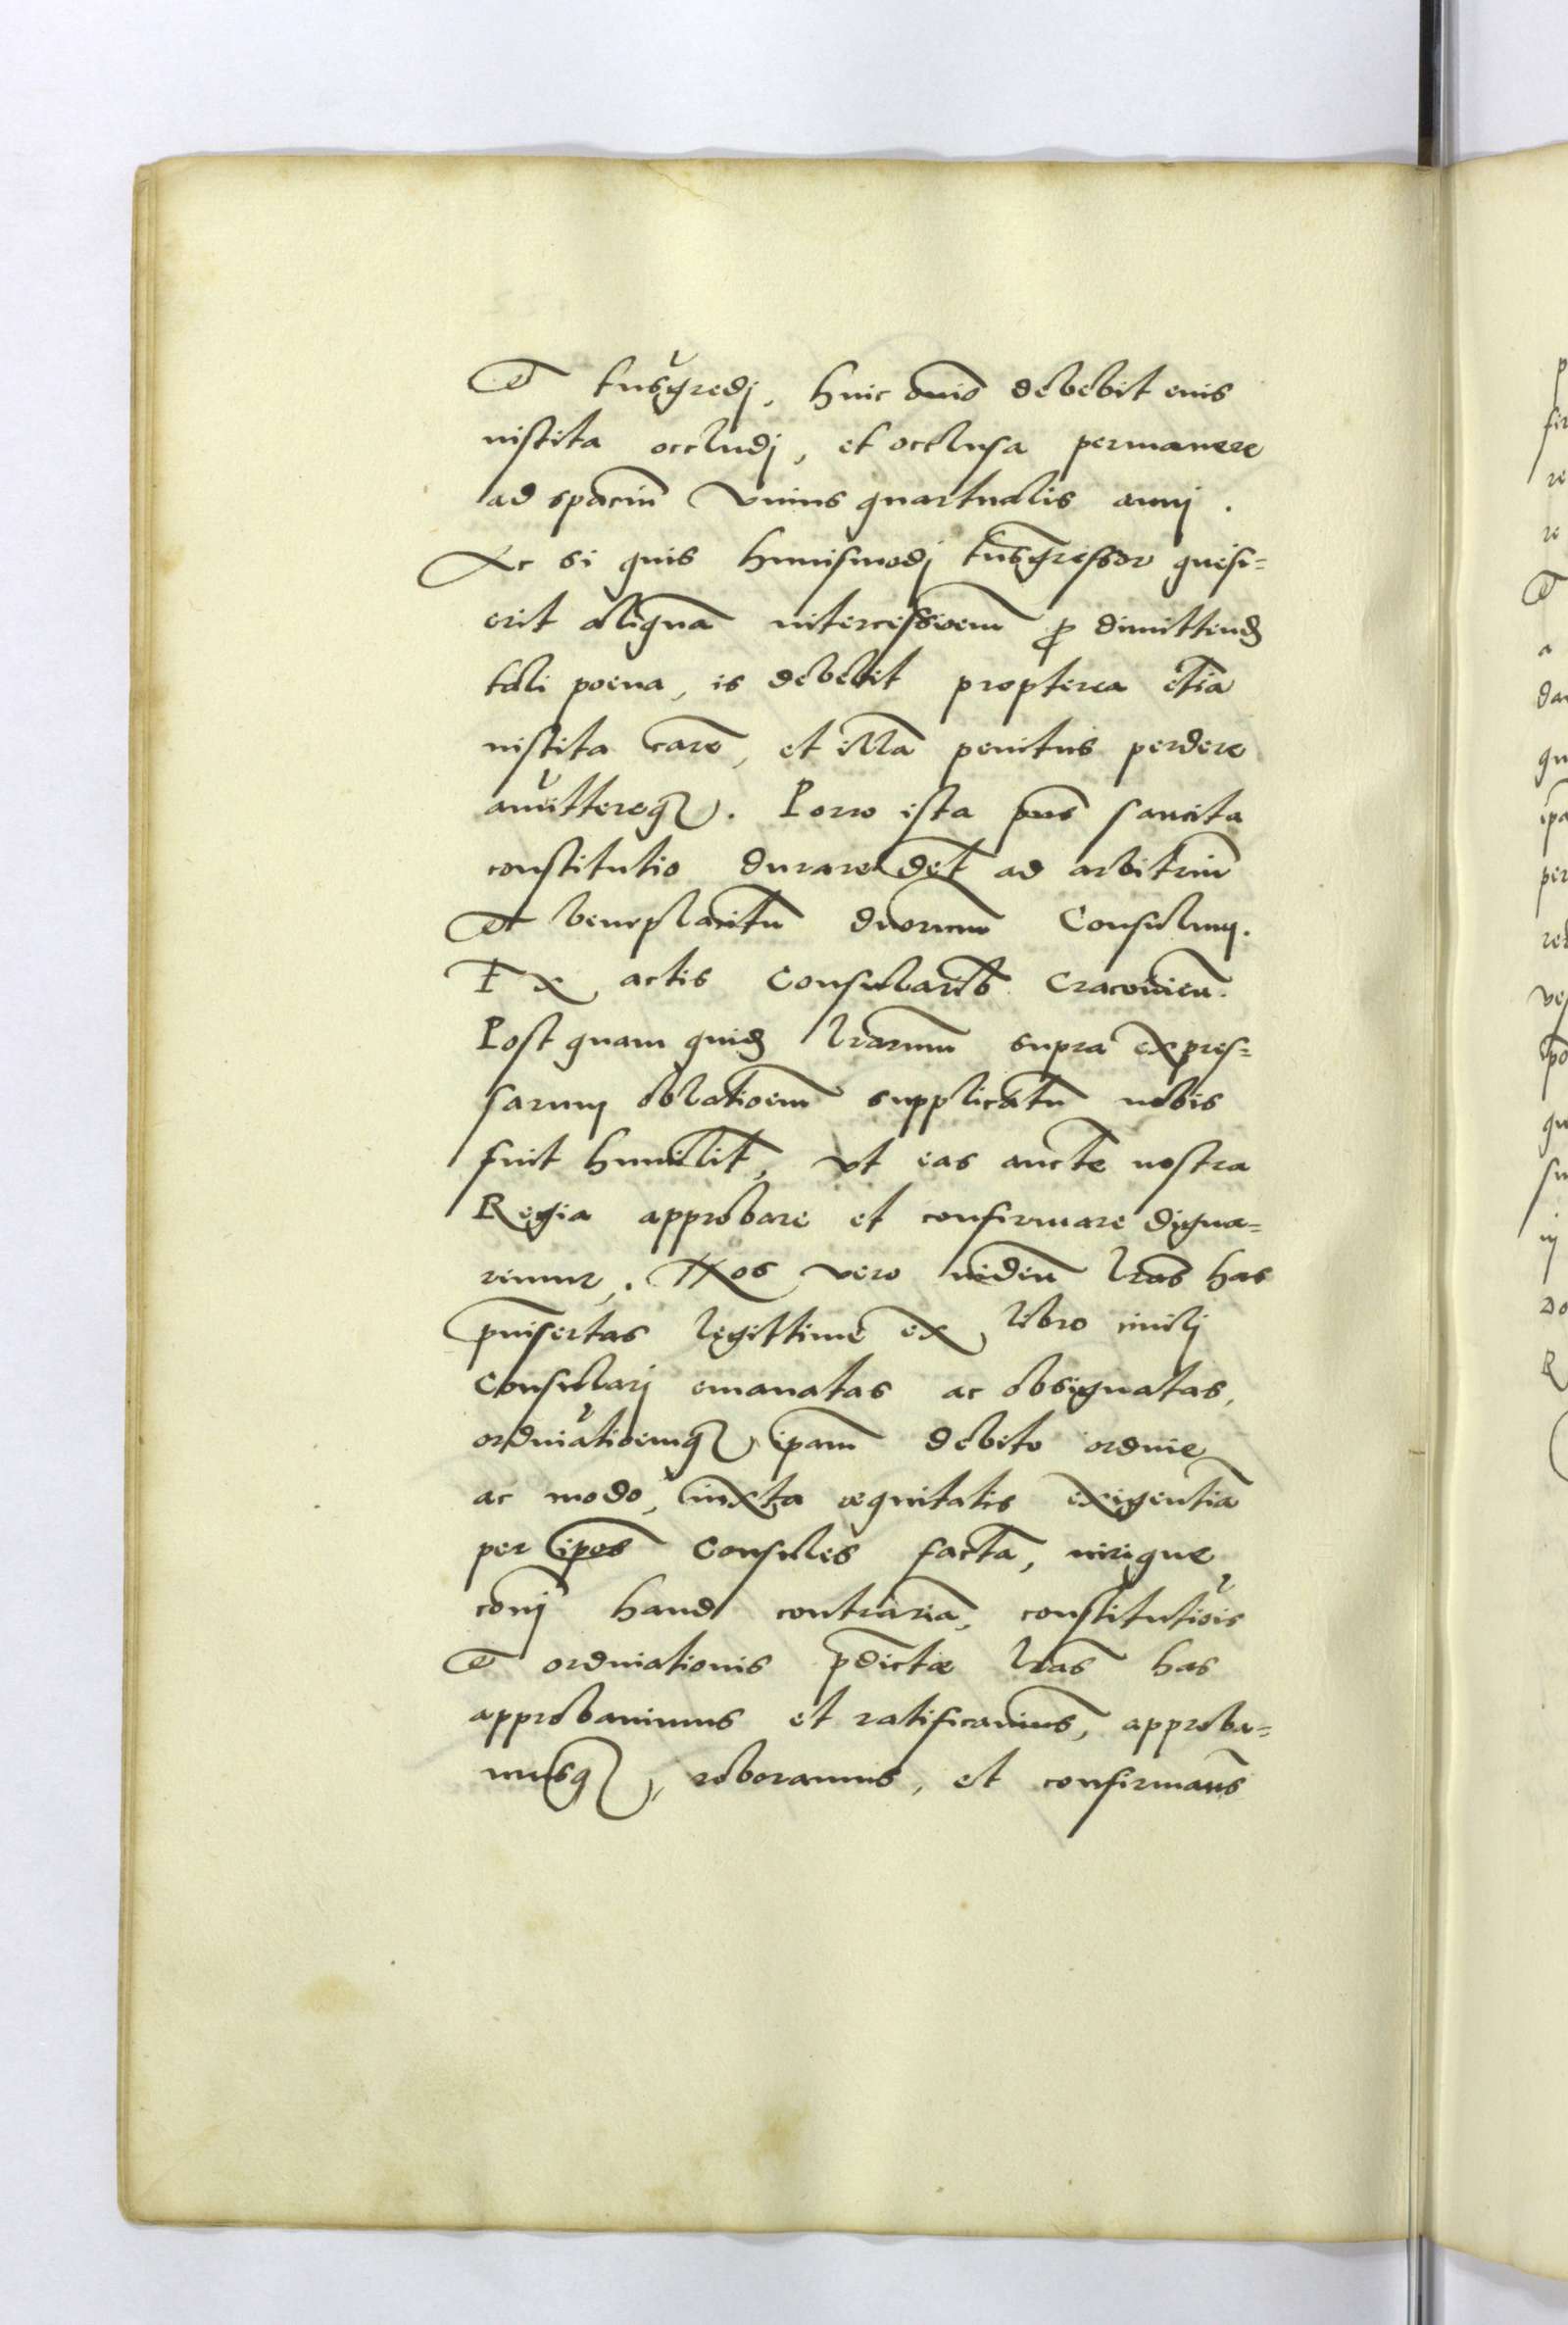 et trãsgredj, huic omĩo debebit eius
instita occludj, et occlusa permanere
ad spaciũ vnius quartualis annj.
Ac si quis huiusmodj trãsgressor quesi=
erit aliquã intercessioem̃ ꝓ dimittend
tali poena, is debebit propterea etiã
instita carẽ, et illã penitus perdere
amittereqꝫ. Porro ista pñs sancita
constitutio durare deb̃t ad arbitriũ
et beneplacitũ duorum̃ Consulum.
Ex actis Consularib Cracouieñ.
Post quam quid lr̃arum supra expres=
sarum oblatioem̃ supplicatũ nobis
fuit humilit̃, vt eas aucte nostra
Regia approbare et confirmare digna=
remur. Nos vero lr̃as has
p̃insertas legittime ex libro
Consularj emanatas ac obsignatas,
ordinatioemqꝫ ip̃am debito ordine
ac modo, iuxta aequitatis exigentiã
per ip̃os Consules factã, iurique
cõnj haud contrariã, constitutiõis
et ordinationis p̃dictae lr̃as has
approbauimus et ratificauimus, approba=
musqꝫ, roboramus, et confirmam̃s